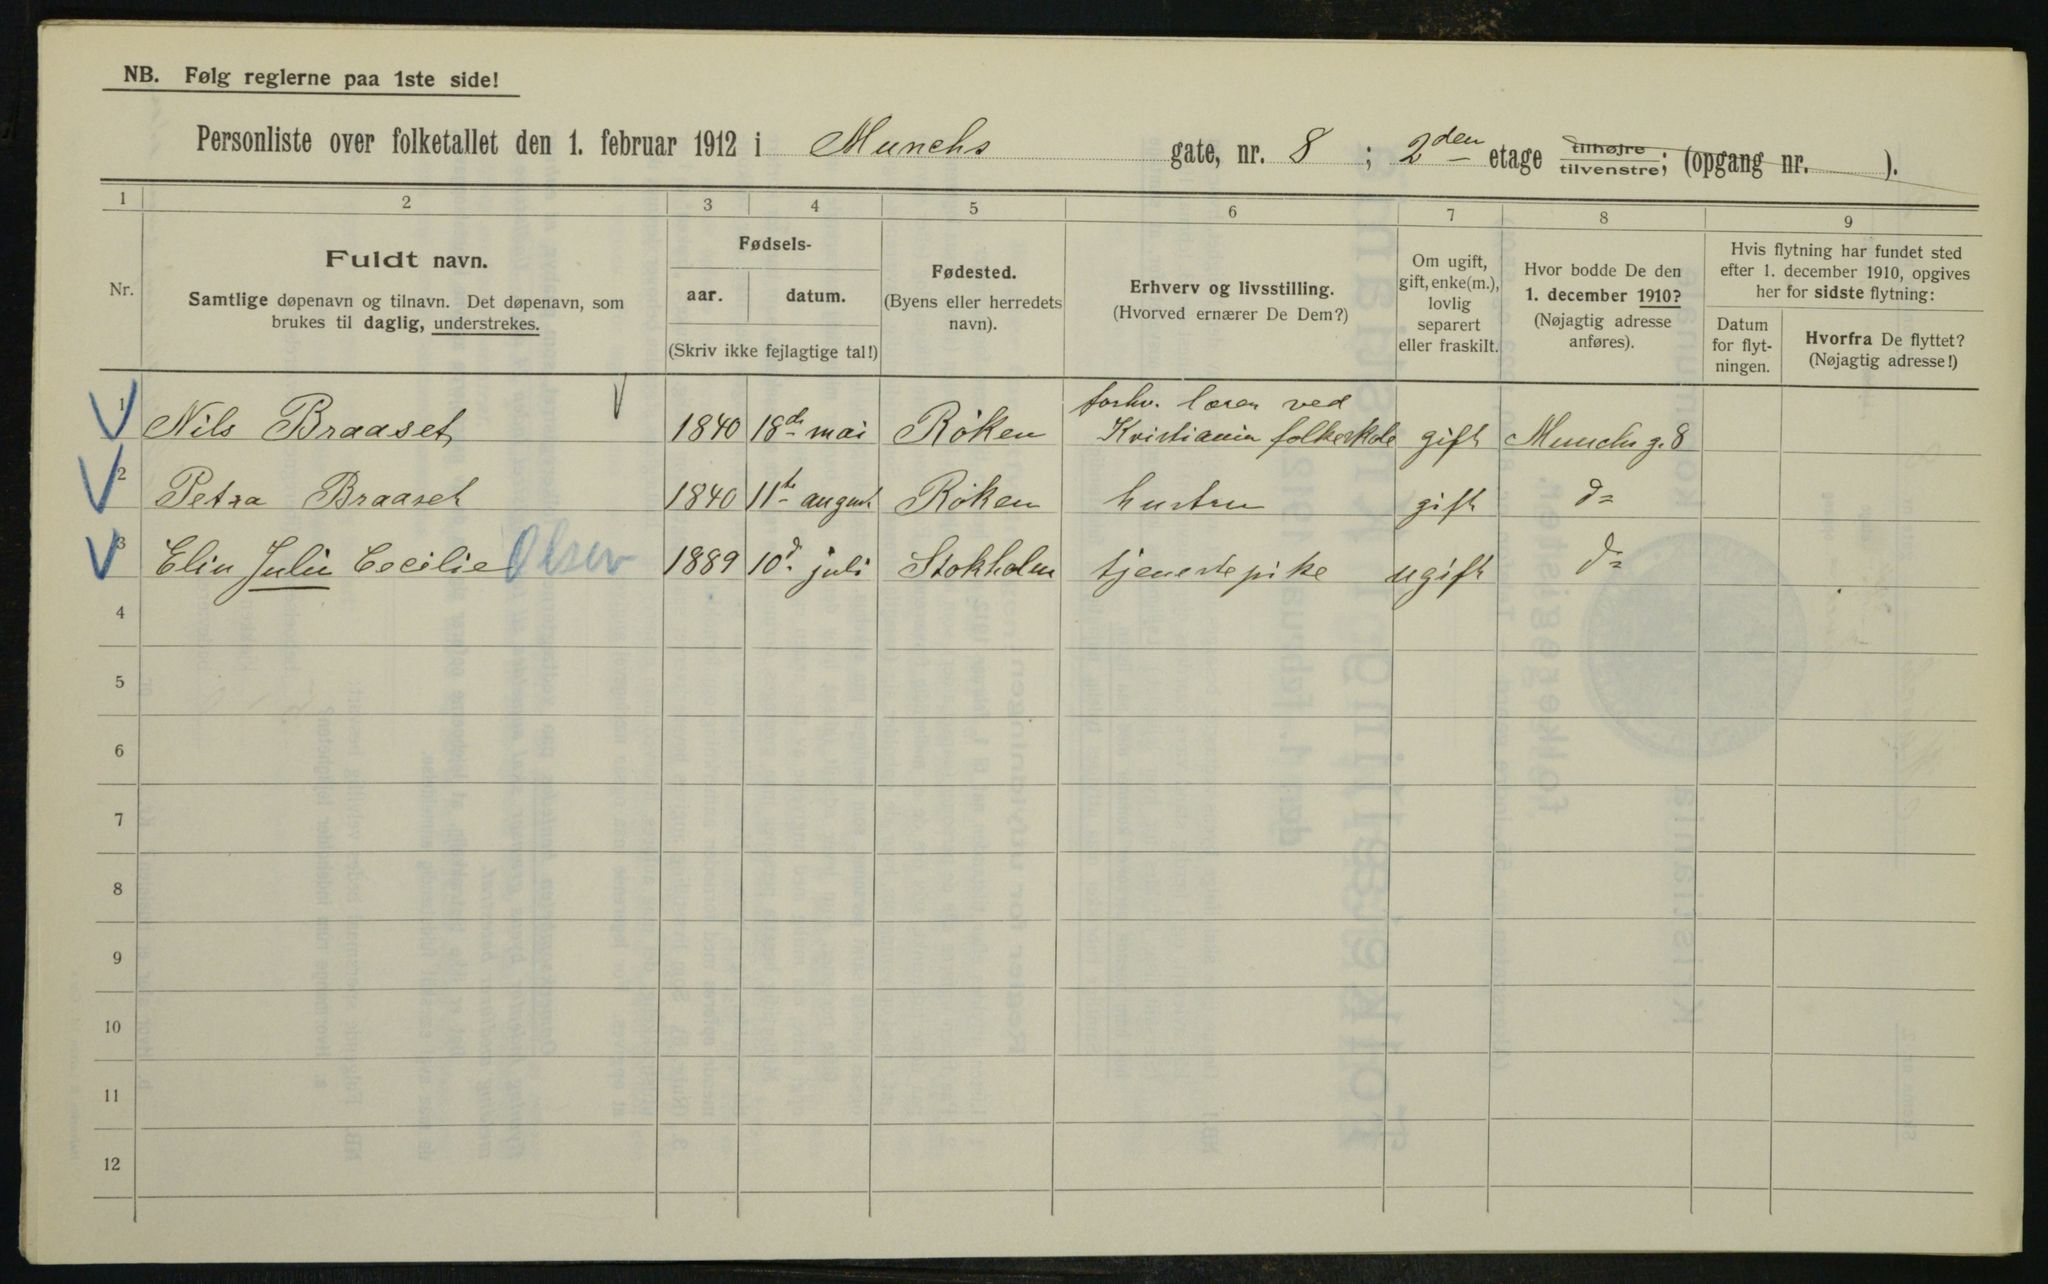 NB. Følg reglerne paa 1ste side!
Personliste over folketallet den 1. februar 1912 i Munchs gate, nr. 8 ; 2den etage tilhøjre tilvenstre; (opgang nr. ).
1 2 3 4 5 6 7 8 9
Nr.
Fuldt navn.
Samtlige døpenavn og tilnavn. Det døpenavn, som
brukes til daglig, understrekes.
Fødsels-
aar. datum.
(Skriv ikke fejlagtige tal!)
Fødested.
(Byens eller herredets
navn).
Erhverv og livsstilling.
(Hvorved ernærer De Dem?)
Om ugift,
gift, enke(m.),
lovlig
separert
eller fraskilt.
Hvor bodde De den
1. december 1910?
(Nøjagtig adresse
anføres).
Hvis flytning har fundet sted
efter 1. december 1910, opgives
her for sidste flytning:
Datum
for flyt-
ningen.
Hvorfra De flyttet?
(Nøjagtig adresse!)
1 Nils Braaset 1840 18de mai Røken forhv. lærer ved
Kristiania folkeskole gift Munchs g. 8
2 Petra Braaset 1840 11te august Røken hustru gift do
3 Elin Julie Cecilie Olsen 1889 10d juli Stokholm tjenestepike ugift do
4
5
6
7
8
9
10
11
12